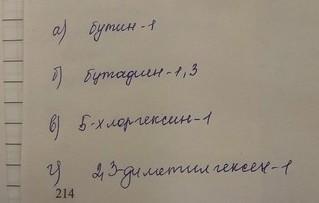 а) бутин-1
б) бутадиен-1,3
в) 5-хлоргексин-1
г) 2,3-диметилгексен-1
214